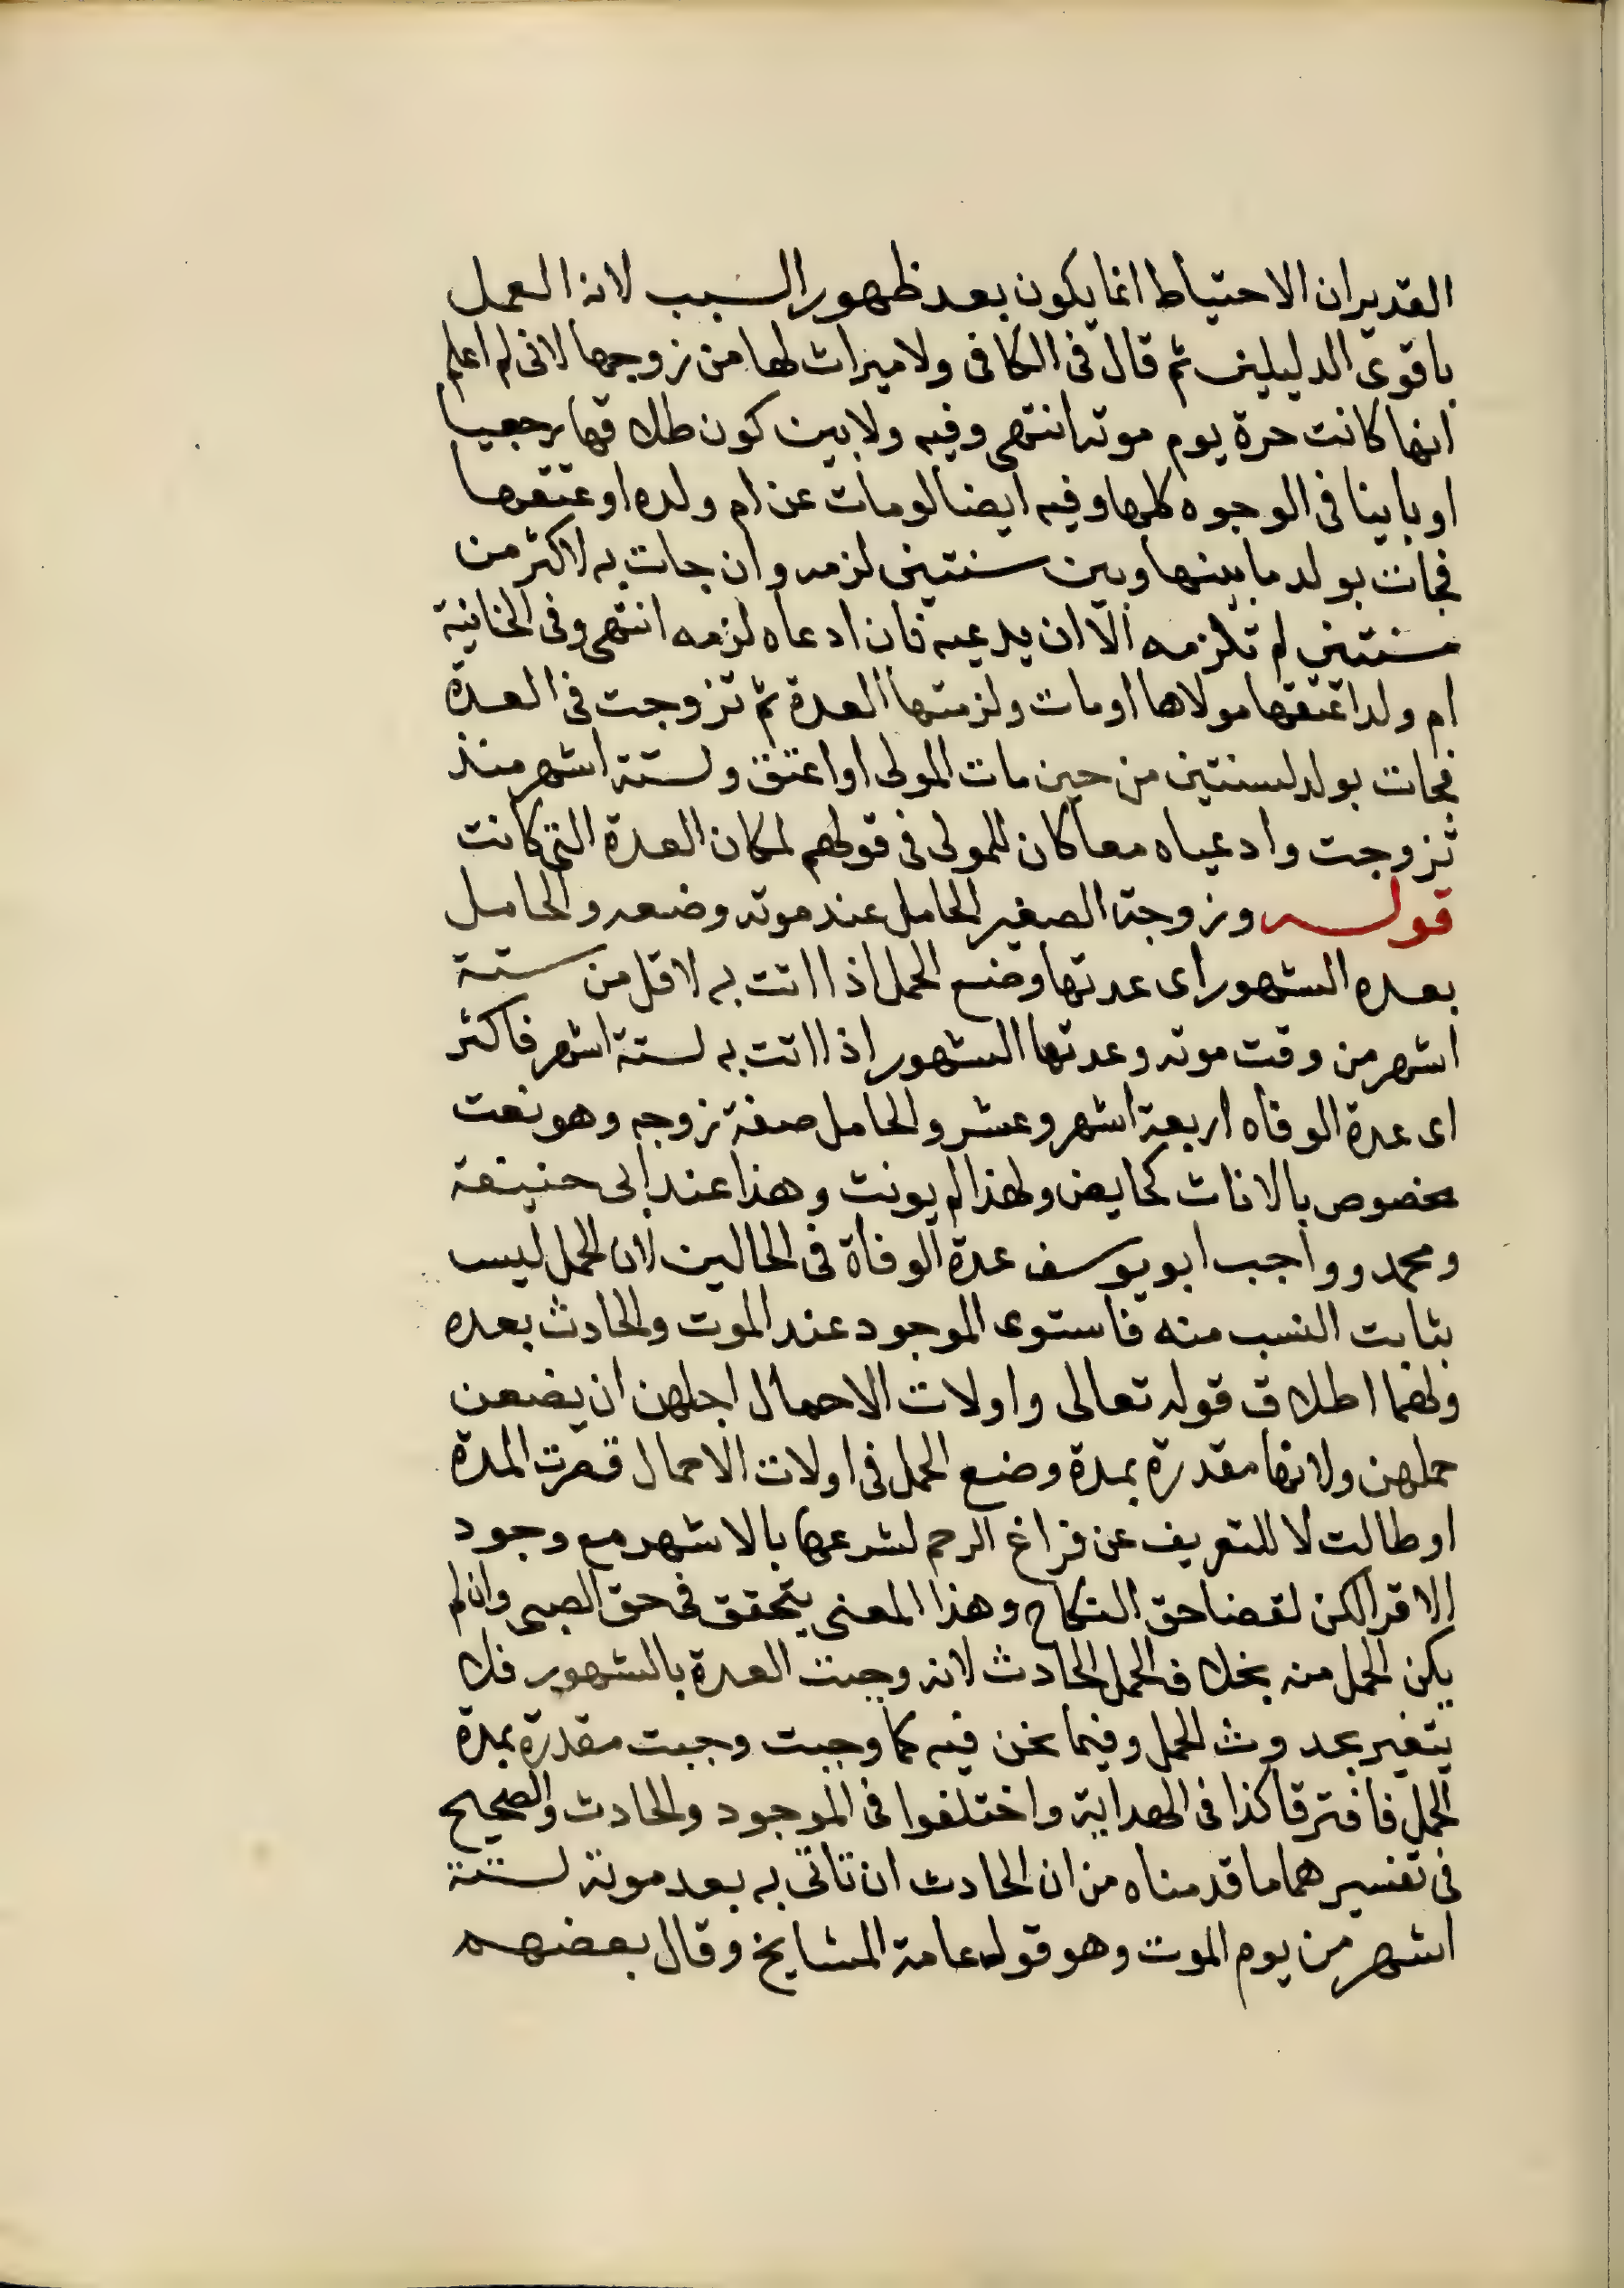 القديران الاحتياط انما يكون بعد ظهور السبب لانه العمل
باقوى الدليلين ثم قال فى الكافى ولا ميراث لها من زوجها لانى لم اعلم
انها كانت حرة يوم موته انتهى وفيه ولا بين كون طلاقها رجعيا
او باينا فى الوجوه كلها وفيه ايضا لو مات عن ام ولده او عتقها
فجات بولد ما بينها وبين سنتين لزمه وان جات به لاكثر من
سنتين لم تلزمه الا ان يدعيه فان ادعاه لزمه انتهى وفى الخانية
ام ولد اعتقها مولاها او مات ولزمتها العدة ثم تزوجت فى العدة
فجات بولد لسنتين من حين مات المولى او اعتق ولستة اشهر منذ
تزوجت وادعياه معا كان للمولى فى قولهم لمكان العدة التى كانت
قوله وزوجة الصغير الحامل عند موته وضعه والحامل
بعده الشهور اى عدتها وضع الحمل اذا اتت به لاقل من ستة
اشهر من وقت موته وعدتها الشهور اذا اتت به لستة اشهر فاكثر
اى عدة الوفاه اربعة اشهر وعشر والحامل صفة زوجه وهو نعت
مخصوص بالاناث كحايض ولهذا لم يونث وهذا عند ابى حنيفة
ومحمد وواجب ابو يوسف عدة الوفاة فى الحالين لان الحمل ليس
بثابت النسب منه فاستوى الموجود عند الموت والحادث بعده
ولهما اطلاق قوله تعالى واولات الاحمال اجلهن ان يضعن
حملهن ولانها مقدرة بمدة وضع الحمل فى اولات الاحمال قصرت المدة
او طالت لا للتعريف عن فراغ الرحم لشرعها بالاشهر مع وجود
الاقرا لكن لقضا حق النكاح وهذا المعنى يتحقق فى حق الصبى وان لم
يكن الحمل منه بخلاف الحمل الحادث لانه وجبت العدة بالشهور فلا
يتغير بحدوث الحمل وفيما نحن فيه كما وجبت وجبت مقدرة بمدة
الحمل فافترقا كذا فى الهداية واختلفوا فى الموجود والحادث والصحيح
فى تفسيرهما ما قدمناه من ان الحادث ان تاتى به بعد موته لستة
اشهر من يوم الموت وهو قول عامة المشايخ وقال بعضهم